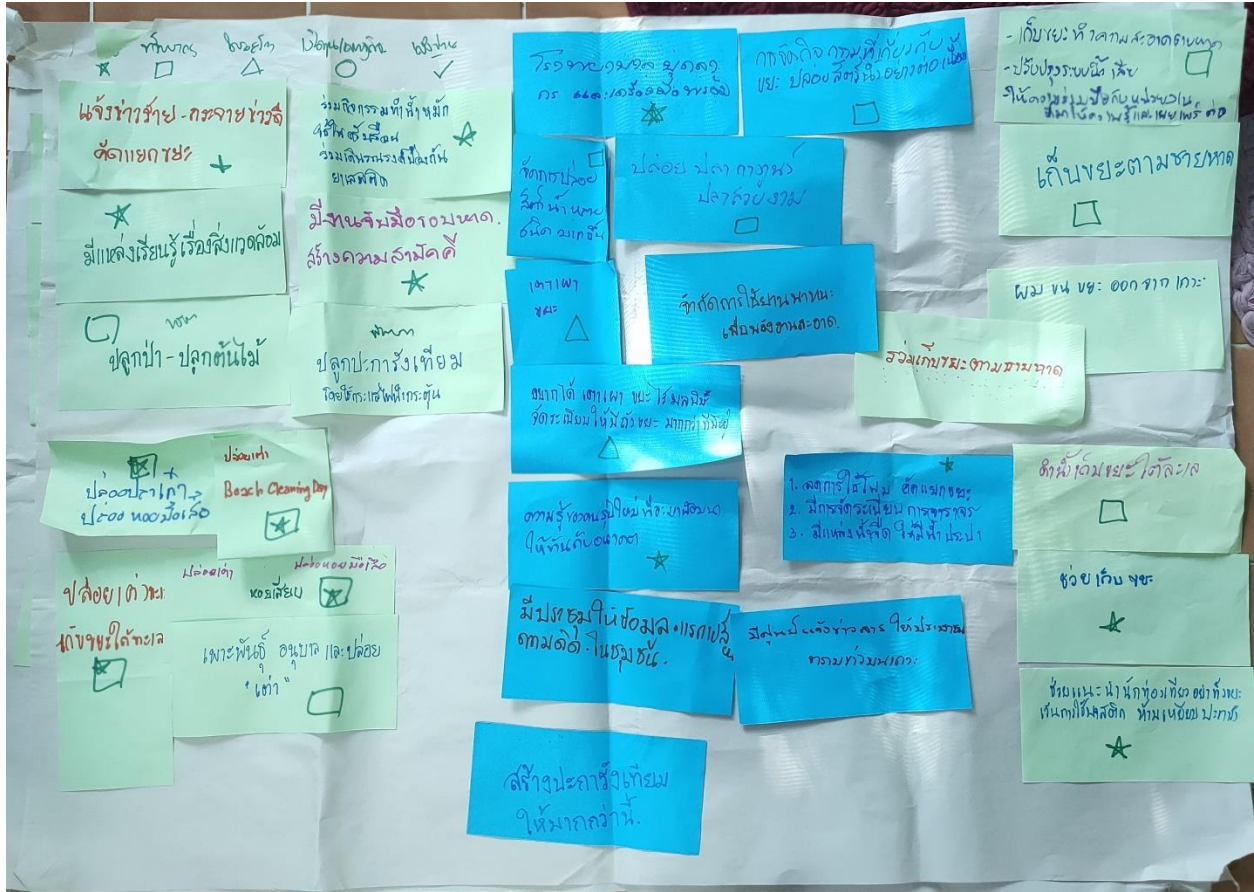 แจ้งข่าวร้าย - กระจายข่าวดี
คัดแยกขยะ
ร่วมกิจกรรมทำน้ำหมัก
ใช้ในครัวเรือน
ร่วมเดินรณรงค์ป้องกัน
ยาเสพติด
มีแหล่งเรียนรู้เรื่องสิ่งแวดล้อม
มีงานจับมือรอบหาด.
สร้างความสามัคคี
ปลูกป่า - ปลูกต้นไม้
ปลูกปะการังเทียม
โดยใช้กระแสไฟฟ้ากระตุ้น
ปล่อยปลาเก๋า
ปล่อย หอยมือเสือ
ปล่อยเต่า
Beach Cleaning Day
ปล่อยเต่า
เก็บขยะใต้ทะเล
ปล่อยเต่า
ปล่อยหอยมือเสือ
เพาะพันธุ์ อนุบาล และปล่อย
"เต่า"
โรงพยาบาล บุคลา
กร และเครื่องมือพร้อม
การจัดกิจกรรมที่เกี่ยวกับ
ขยะ ปล่อยสัตว์น้ำอย่างต่อเนื่อง
จัดการปล่อย
สัตว์น้ำหลาย
ชนิด มากขึ้น
ปล่อย ปลาการ์ตูน
ปลาสวยงาม
เตาเผา
ขยะ
จำกัดการใช้ยานพาหนะ
เพื่อพลังงานสะอาด.
อยากได้ เตาเผา ขยะไร้มลพิษ
จัดระเบียบให้มีถังขยะ มากกว่าที่มีอยู่
ความรู้ของคนรุ่นใหม่ที่จะมาพัฒนา
ให้ทันกับอนาคต
1. ลดการใช้โฟม คัดแยกขยะ
2. มีการจัดระเบียบ การจราจร
3. มีแหล่งน้ำจืด ให้มีน้ำประปา
มีประชุมให้ข้อมูล แลกเปลี่ยน
ความคิด ในชุมชน.
มีศูนย์แจ้งข่าวสาร ให้ประชาชน
ทราบข่าวบนเกาะ
สร้างปะการังเทียม
ให้มากกว่านี้.
- เก็บขยะ ทำความสะอาดชายหาด
- ปรับปรุงระบบน้ำเสีย
ให้ความร่วมมือกับหน่วยงาน
ที่มาให้ความรู้และเผยแพร่ต่อ
เก็บขยะตามชายหาด
ผม ขน ขยะ ออกจาก เกาะ
ร่วมเก็บขยะตามชายหาด
ดำน้ำเก็บขยะใต้ทะเล
ช่วยเก็บ ขยะ
ช่วยแนะนำนักท่องเที่ยวอย่าทิ้งขยะ
เว้นการใช้พลาสติก ห้ามเหยียบปะการัง